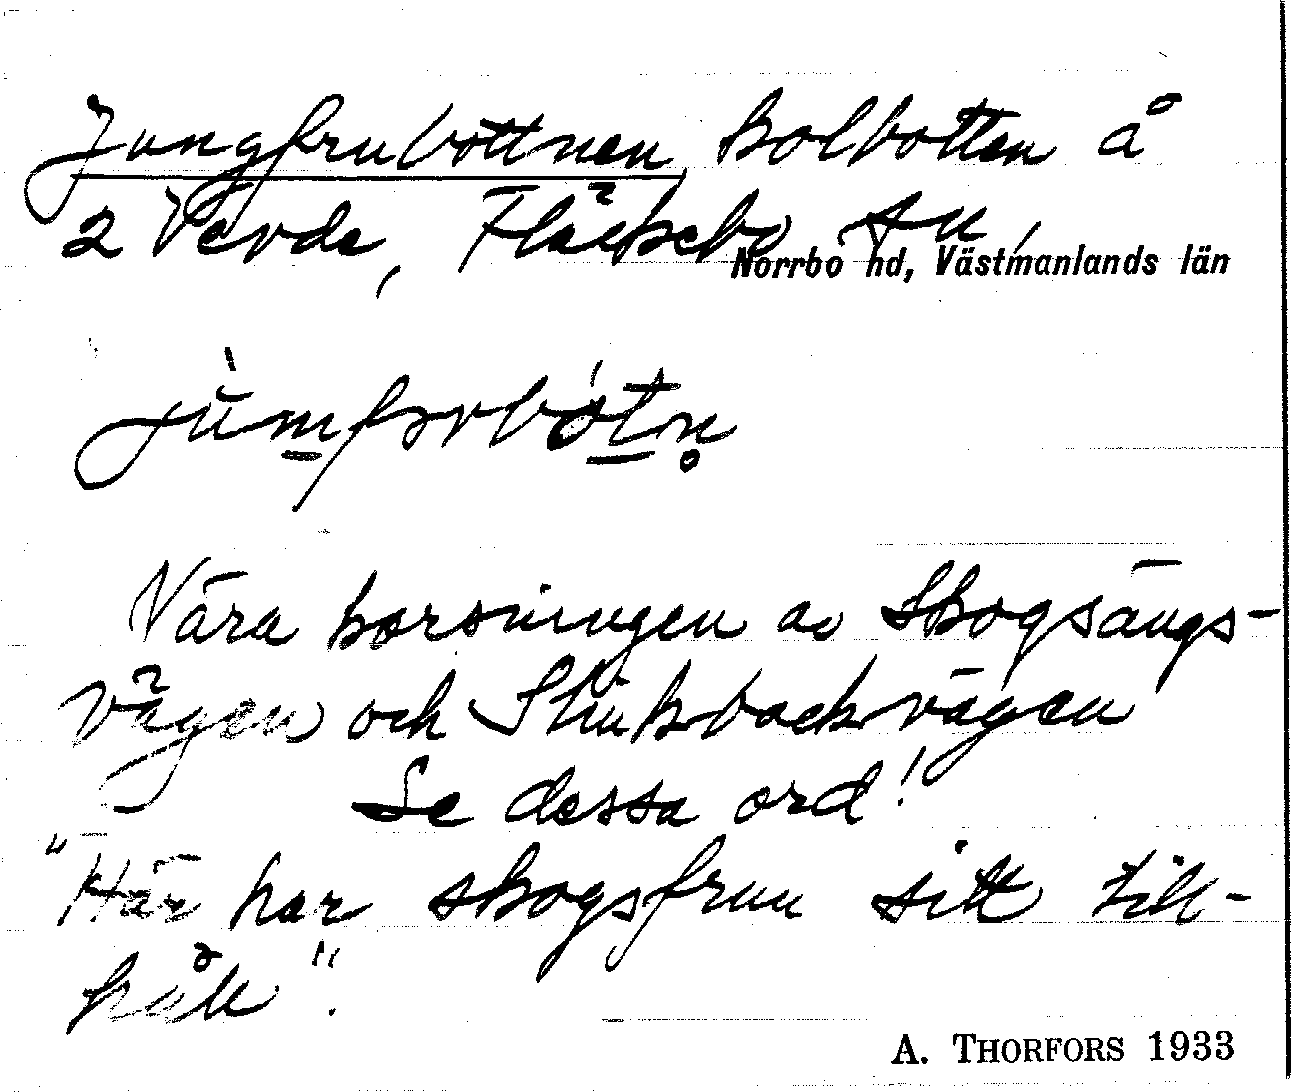 Jungfrubottnen Kolbotten å
2 Verde, Fläckebo sn,
Norrbo hd, Västmanlands län
Nära korsningen av Skogsängs-
vägen och Stinkbackvägen
Se dessa ord!
"Här har skogsfrun sitt till-
håll".
A. THORFORS 1933